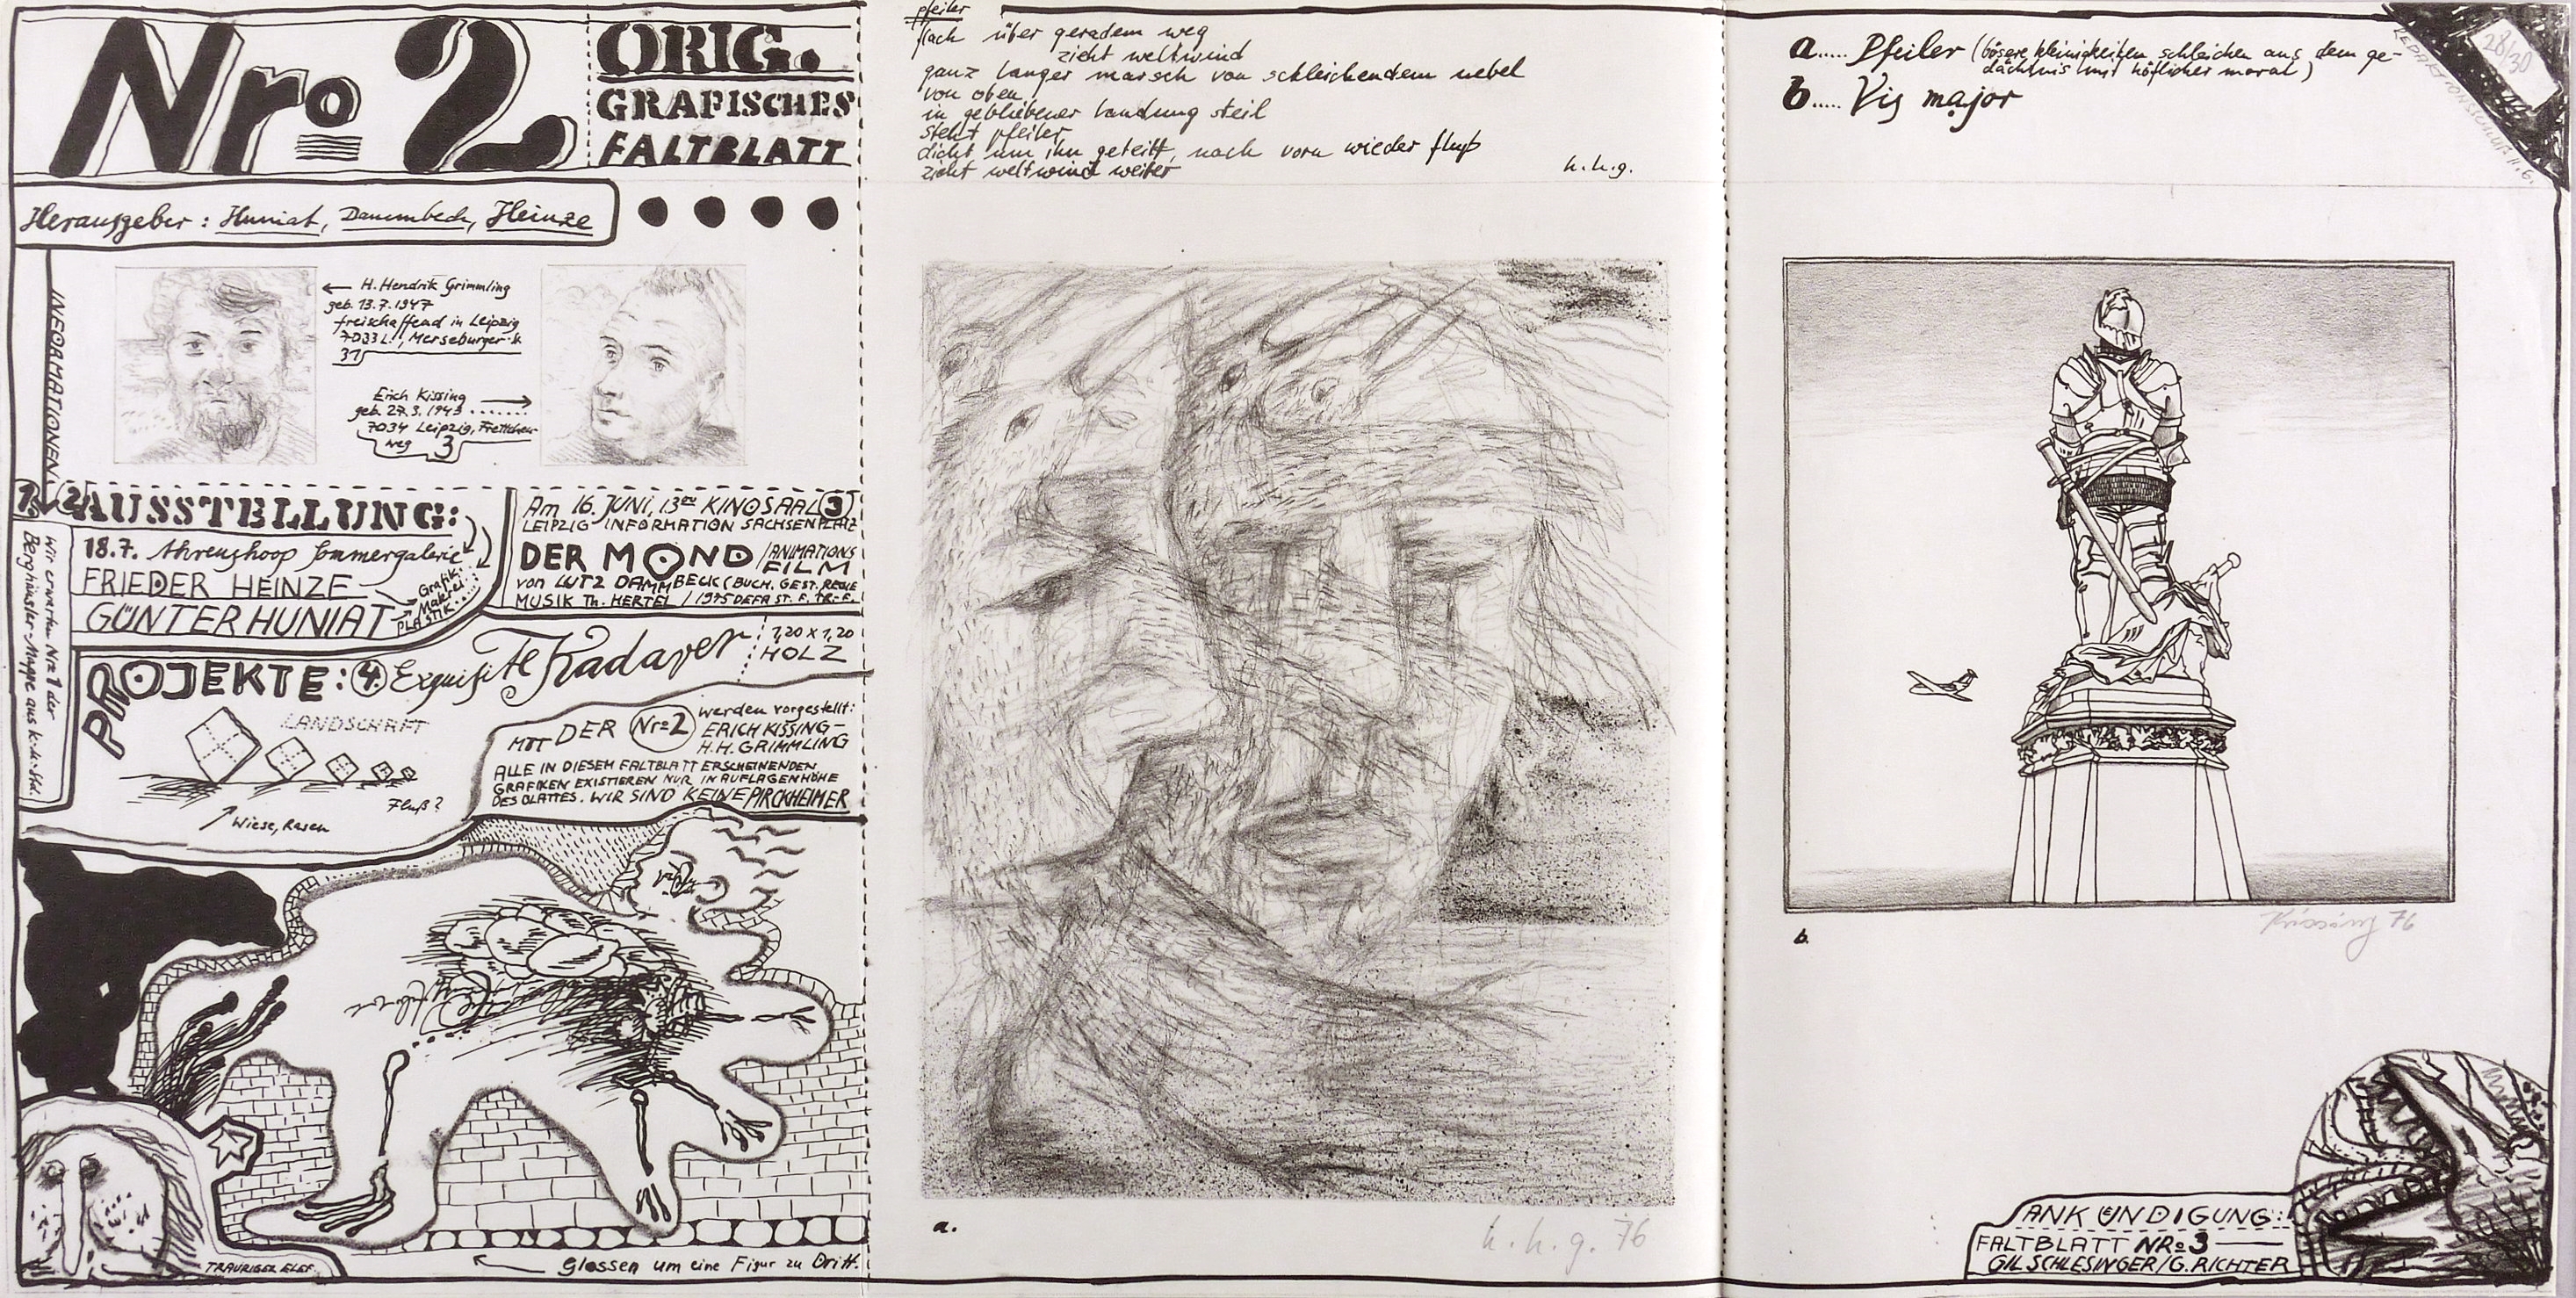 Nro 2
ORIG.
GRAFISCHES
FALTBLATT
Herausgeber: Huniat, Dammbeck, Heinze
INFORMATIONEN
← H. Hendrik Grimmling
geb. 13.7.1947
freischaffend in Leipzig
7033 L., Merseburger
37
Erich Kissing
geb. 27.3.1943 ......
7034 Leipzig,
weg 3
1.
2 AUSSTELLUNG:
18.7. Ahrenshoop Sommergalerie
FRIEDER HEINZE
GÜNTER HUNIAT
Grafik
Malerei
PLASTIK
Wir erwarten Nr. 1 der
Berghäusler-Mappe aus
Am 16. JUNI, 13 KINOSAAL 3
LEIPZIG INFORMATION SACHSENPLATZ
DER MOND / ANIMATIONS
FILM
von LUTZ DAMMBECK (BUCH, GEST. REGIE
MUSIK Th. HERTEL / 1975 DEFA ST. F. TR. F.
PROJEKTE: 4. Exquisite Kadaver
1,20 x 1,20
HOLZ
LANDSCHAFT
Fluß?
Wiese, Rasen
MIT DER Nr=2 werden vorgestellt:
ERICH KISSING –
H.H. GRIMMLING
ALLE IN DIESEM FALTBLATT ERSCHEINENDEN
GRAFIKEN EXISTIEREN NUR IN AUFLAGENHÖHE
DES BLATTES. WIR SIND KEINE PIRCKHEIMER
TRAURIGER ELEF.
glossen um eine Figur zu Dritt.
pfeiler
flach über geradem weg
zieht weltwind
ganz langer marsch von schleichendem nebel
von oben
in gebliebener landung steil
steht pfeiler
dicht um ihn geteilt, nach vorn wieder fluß
zieht weltwind weiter
h.h.g.
a.
h.h.g. 76
a..... Pfeiler (bösere kleinigkeiten schleichen aus dem ge-
dächtnis mit höflicher moral)
b..... Vis major
28/30
REDAKTIONSSCHLUß 11.6.
Kissing 76
b.
ANKÜNDIGUNG:
FALTBLATT NRo 3
GIL SCHLESINGER/G. RICHTER